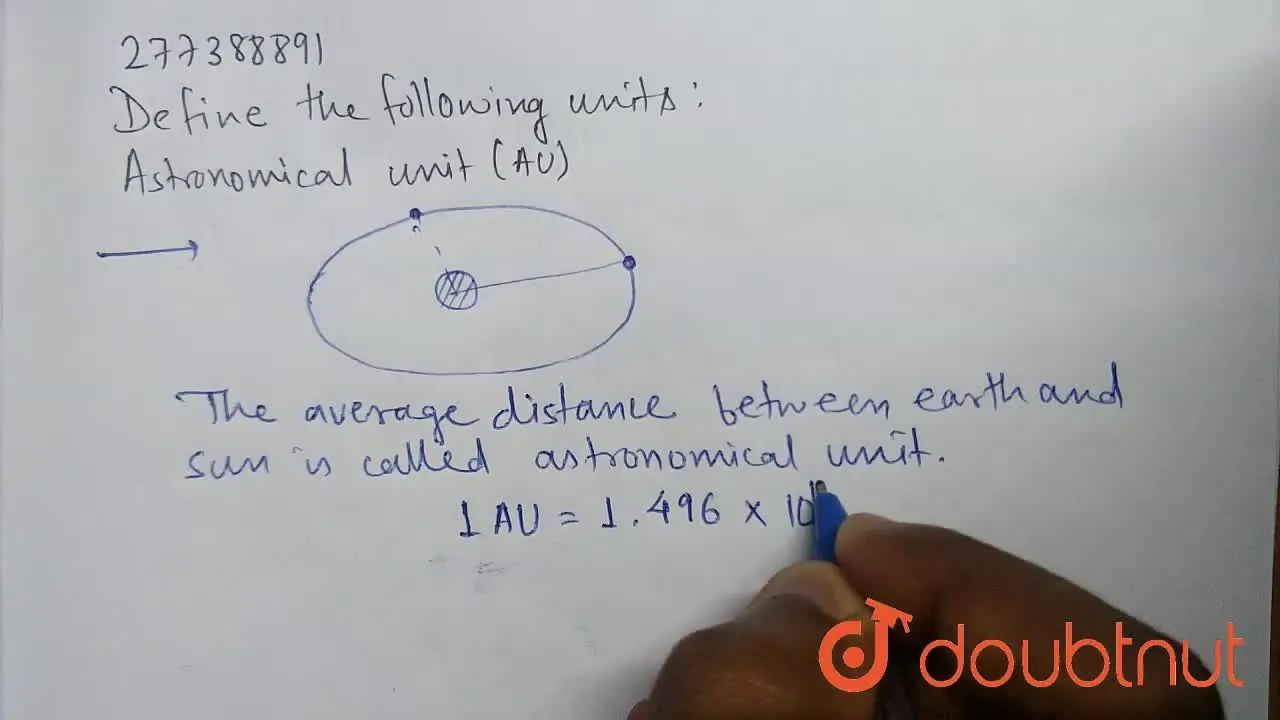 277388891
Define the following units:
Astronomical unit (AU)
The average distance between earth and
sun is called astronomical unit.
1 AU = 1.496 x 10
doubtnut